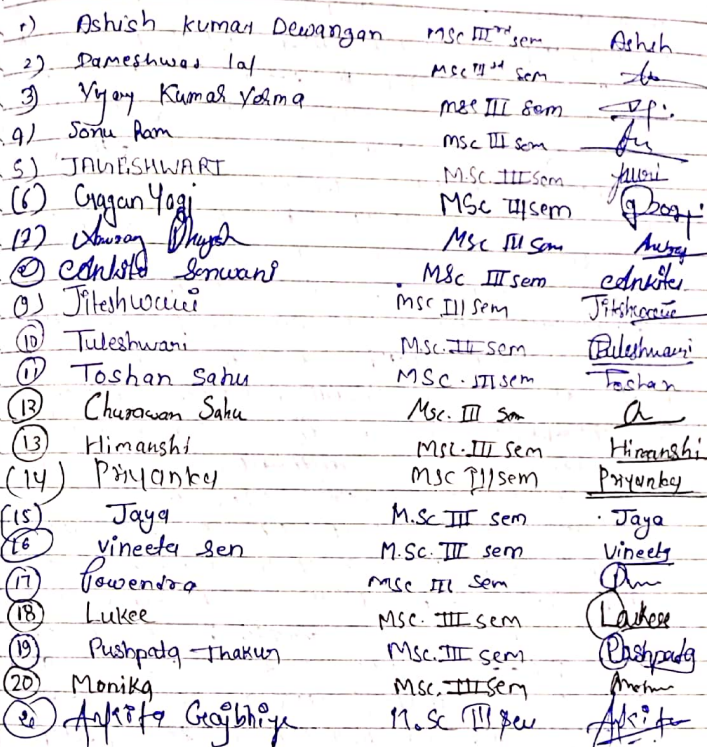 1) Ashish Kumar Dewangan MSc III rd sem Ashish
2) Dameshwar lal MSc III rd sem
3) Vijay Kumar Verma MSc III Sem
4) Sonu Ram MSC III Sem
5) JAGESHWARI M.SC. III Sem
(6) Gagan Yogi MSC III sem
(7) Anurag MSC III Sem Anurag
(8) Ankita Sonwani MSc III sem Ankita
(9) Jiteshwari MSC III Sem Jiteshwari
(10) Tuleshwari M.SC. III Sem Tuleshwari
(11) Toshan Sahu MSC. III sem Toshan
(12) Churawan Sahu Msc. III Sem
(13) Himanshi MSc. III Sem Himanshi
(14) Priyanka MSC III sem Priyanka
(15) Jaya M.Sc III sem Jaya
16 Vineeta Sen M.Sc. III sem Vineeta
(17) MSC III Sem
(18) Lukee MSC. III Sem Laukee
(19) Pushpata Thakur MSC. III sem Pushpata
(20) Monika MSC. III Sem
Ankita Gajbhiye M.Sc III Sem Ankita